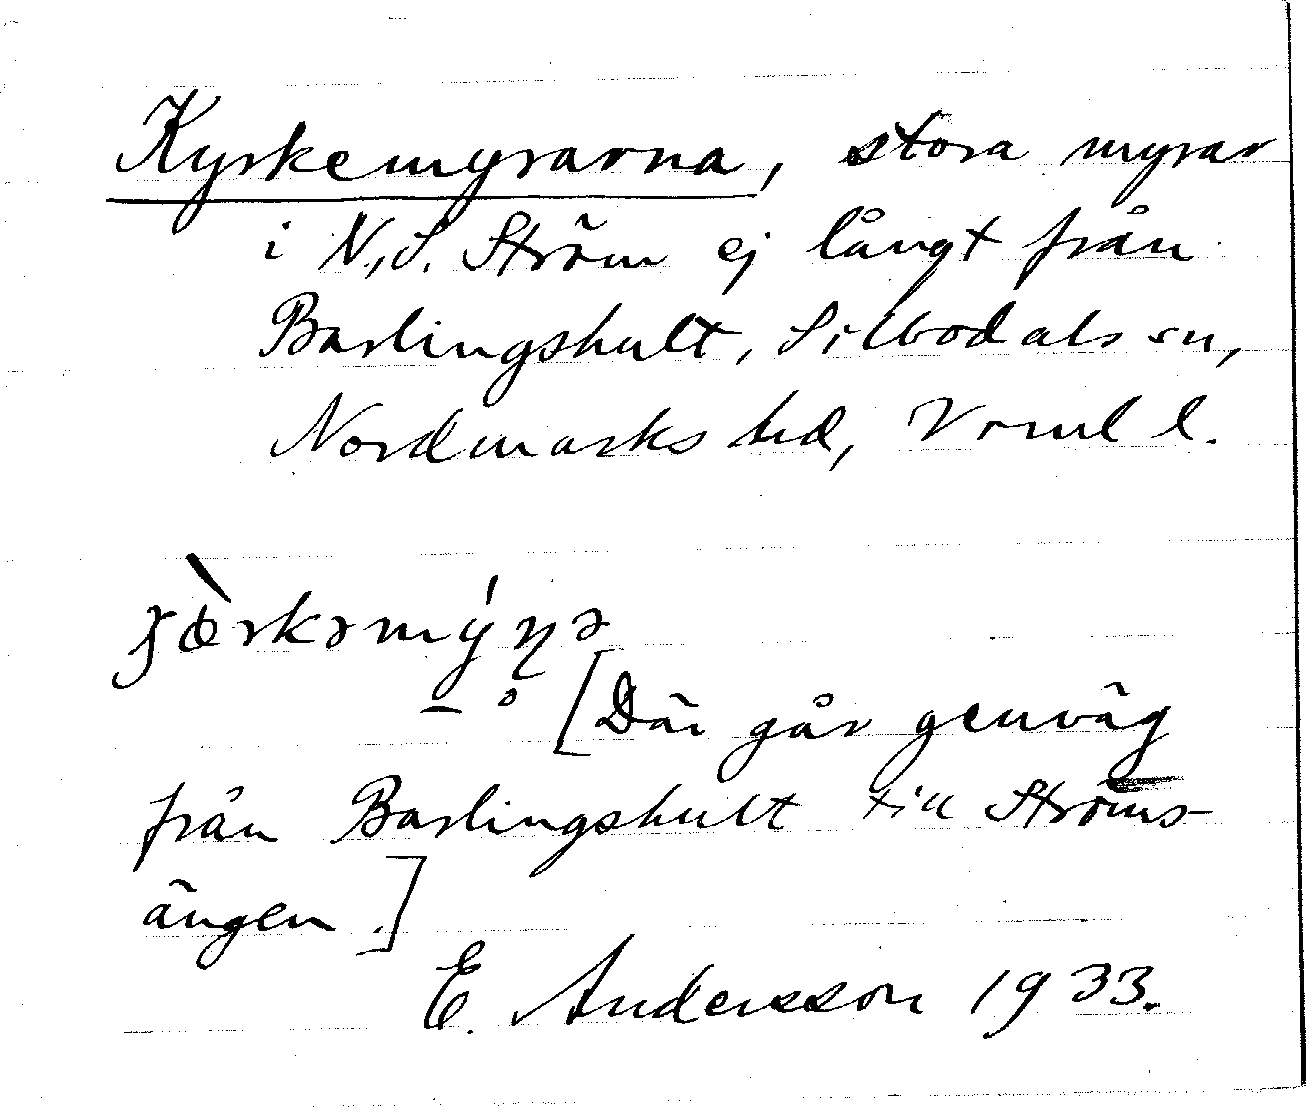 Kyrkemyrarna, stora myrar
i N., S. Ström ej långt från
Barlingshult, Silbodals sn,
Nordmarks hd, Vrml l.
[Där går genväg
från Barlingshult till Ströms-
ängen.]
E. Andersson 1933.